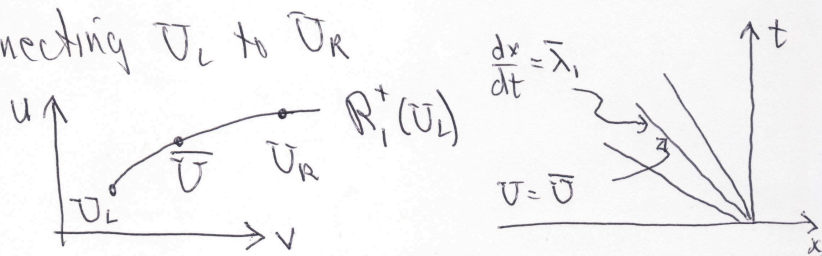 necting U_L to U_R
u
U_L
Ū
U_R
R_1^+(U_L)
v
dx/dt = λ̄_1
U = Ū
t
x